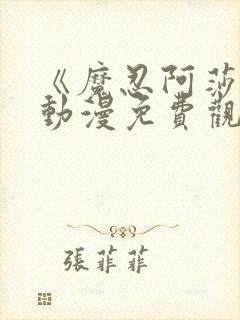 《魔忍阿莎
動漫免費觀
張菲菲